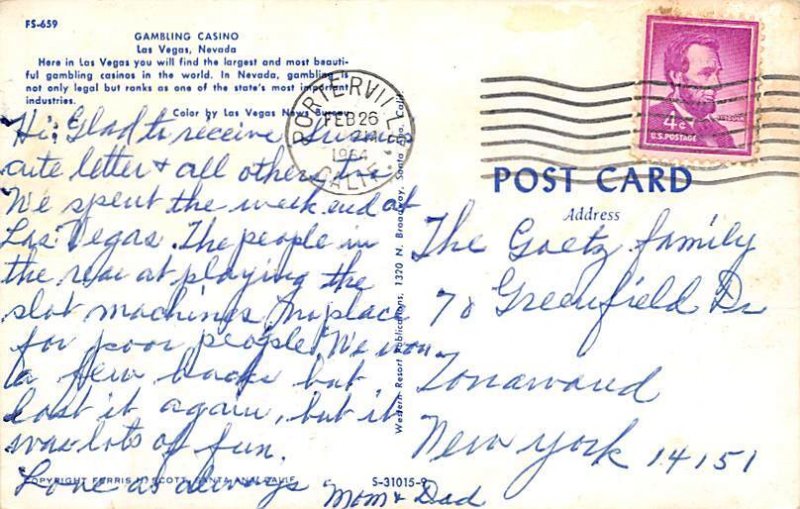 FS-659
GAMBLING CASINO
Las Vegas, Nevada
Here in Las Vegas you will find the largest and most beauti-
ful gambling casinos in the world. In Nevada, gambling is
not only legal but ranks as one of the state's most important
industries.
Color by Las Vegas News Bureau
Hi: Glad to receive Susan's
cute letter & all others too
We spent the week end at
Las Vegas. The people in
the rear at playing the
slot machines. No place
for poor people! We won
a few bucks but
lost it again, but it
was lots of fun.
Love as always
Mom & Dad
COPYRIGHT FERRIS H. SCOTT, SANTA ANA, CALIF.
S-31015-9
Western Resort Publications, 1320 N. Broadway, Santa Ana, Calif.
PORTERVILLE
FEB 26
1964
CALIF.
4¢
U.S. POSTAGE
POST CARD
Address
The Goetz family
70 Greenfield Dr
Tonawand
New York 14151